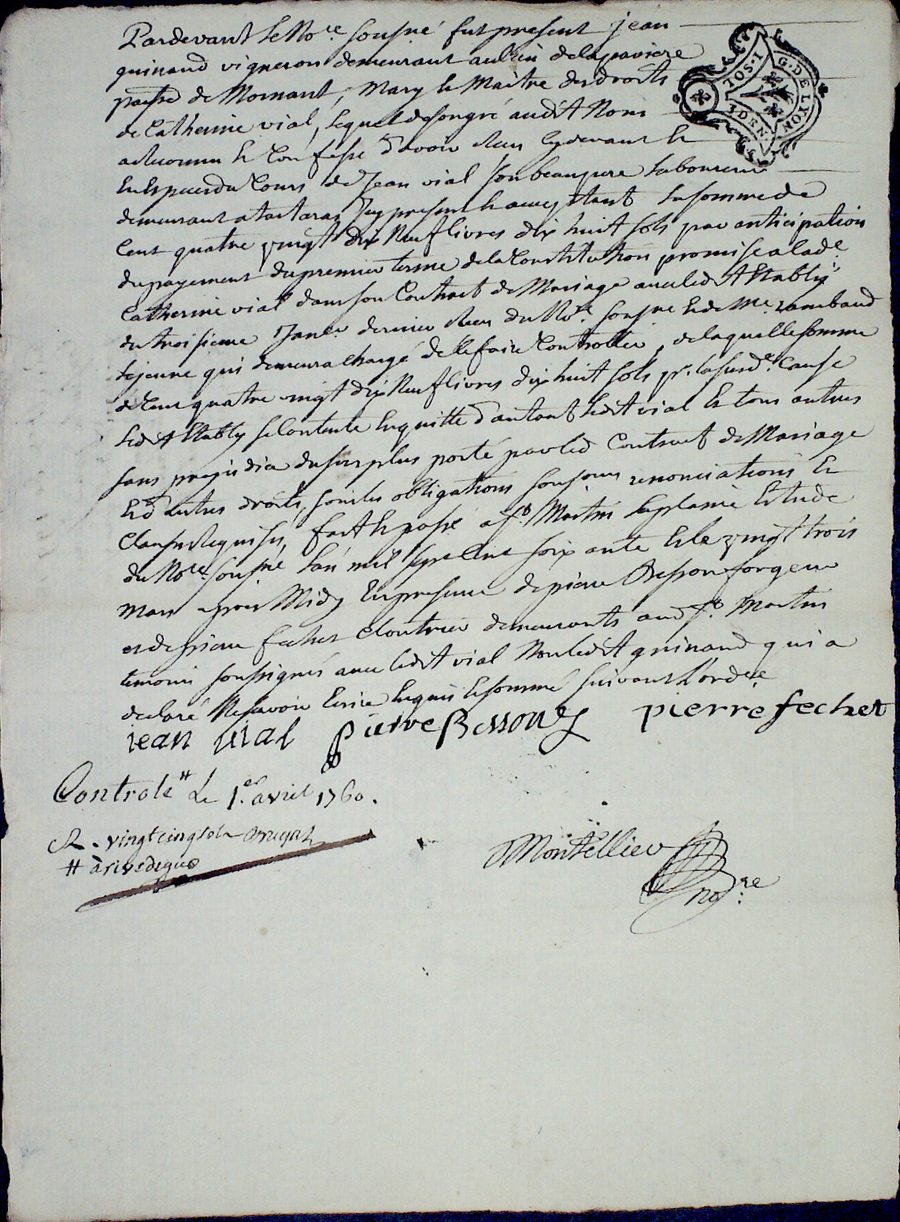 Pardevant Le No.re soussné fut present jean
guinand vigneron demeurant au lieu de la paviere
parsse de Mornant, Mary et Maitre des droits
de Catherine vial, lequel de son gré audit Nom
a reconnu et Confessé d'avoir reçu cy devant et
en Especes du Cours de Jean vial son beaupere laboureur
demeurant a tartaras Icy present et acceptant La somme de
Cent quatre vingt dix Neuf livres dix huit sols par anticipation
du payement du premier terme de la Constitution promise a lad.e
Catherine vial dans son Contrat de Mariage avec led.t Etably
du troisieme Janv.r dernier reçu du No.re soussné et de M.e rambaud
le jeune qui demeura chargé de le faire Controller, de laquelle somme
de Cent quatre vingt dix Neuf livres dix huit sols p.r la susd.e Cause
ledit Etably se Contente en quitte d'autant ledit vial et tous autres
sans prejudice du surplus porté par led. Contrat de Mariage
Et d'autres droits, sous les obligations soumissions renonciations et
Clauses requises, fait et passé a s.t Martin la plaine Etude
du No.re soussné L'an mil sept Cent soixante et le vingt trois
mars apres Midy En presence de pierre Besson forgeur
et de pierre fechet Cloutrier demeurants aud. s.t Martin
temoins soussignés avec ledit vial Non ledit guinand qui a
declaré Ne savoir Ecrire Enquis et sommé suivant L'ordce
jean vial pierre Besson pierre fechet
Controlé # Le 1.er avril 1760.
R. vingt cinq sols
# à rivedegier
Montellier
no.re
G. DE LYON
10S. 1
3 DEN.